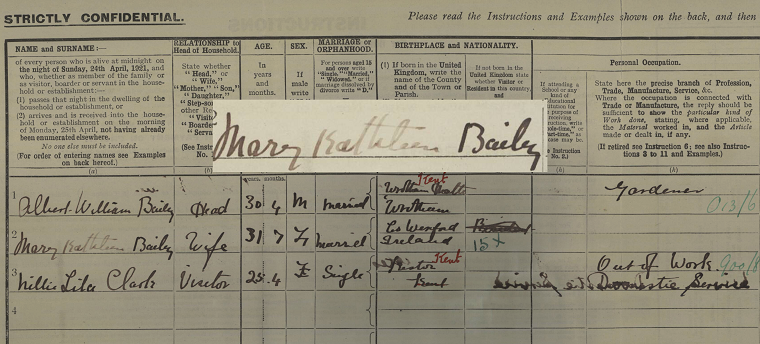 STRICTLY CONFIDENTIAL.
Please read the Instructions and Examples shown on the back, and then
NAME and SURNAME:—
of every person who is alive at midnight on
the night of Sunday, 24th April, 1921, and
who, whether as member of the family or
as visitor, boarder or servant in the house-
hold or establishment:—
(1) passes that night in the dwelling of the
household or establishment, or
(2) arrives and is received into the household
or establishment on the morning
of Monday, 25th April, not having already
been enumerated elsewhere.
No one else must be included.
(For order of entering names see Examples
on back hereof.)
(a)
RELATIONSHIP to
Head of Household.
State whether
"Head," or
"Wife,"
"Mother," "Son,"
"Daughter,"
"Step-son
other Re
"Visit
"Boarder
"Serva
(See Inst
No.
(b)
AGE.
In
years
and
months.
years. months.
SEX.
If
male
write
MARRIAGE or
ORPHANHOOD.
For persons aged 15
and over write
"Single," "Married,"
"Widowed," or if
marriage dissolved by
divorce write "D."
BIRTHPLACE and NATIONALITY.
(1) If born in the United
Kingdom, write the
name of the County
and of the Town or
Parish.
If not born in the
United Kingdom state
whether Visitor or
Resident in this country,
and
If attending a
School or any
Personal Occupation.
State here the precise branch of Profession,
Trade, Manufacture, Service, &c.
Where the occupation is connected with
Trade or Manufacture, the reply should
be sufficient to show the particular kind of
Work done, stating, where applicable,
the Material worked in, and the Article
made or dealt in, if any.
(If retired see Instruction 6; see also Instructions
3 to 11 and Examples.)
(k)
Mary Kathleen Bailey
1 Albert William Bailey Head 30 4 M married Kent Wrotham Gardener 013/6
2 Mary Kathleen Bailey Wife 31 7 F married Co Wexford Ireland 15X
3 Nillie Lila Clark Visitor 25 4 F Single Kent Kent Out of Work 900/8
Domestic Service
4